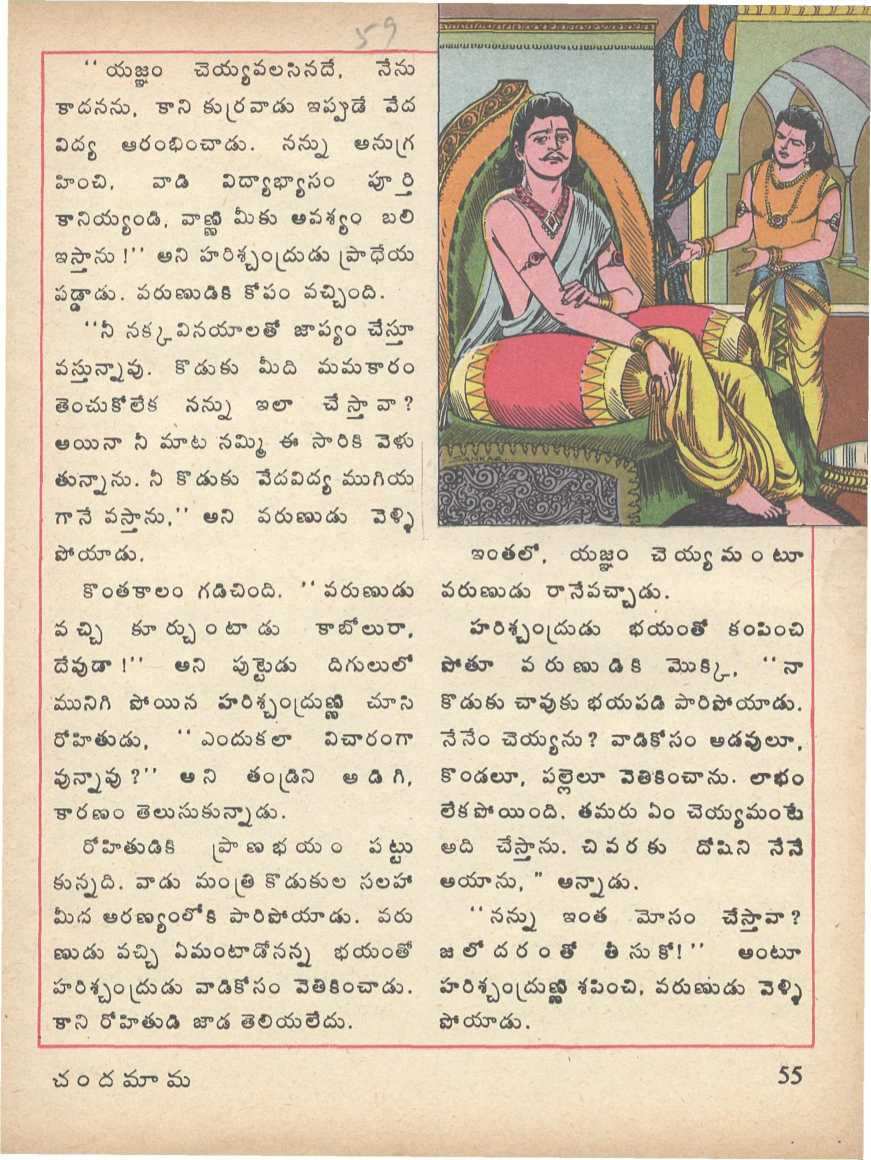 59
‘‘యజ్ఞం చెయ్యవలసినదే, నేను
కాదనను, కాని కుర్రవాడు ఇప్పుడే వేద
విద్య ఆరంభించాడు. నన్ను అనుగ్ర
హించి, వాడి విద్యాభ్యాసం పూర్తి
కానియ్యండి, వాణ్ణి మీకు అవశ్యం బలి
ఇస్తాను!’’ అని హరిశ్చంద్రుడు ప్రాధేయ
పడ్డాడు. వరుణుడికి కోపం వచ్చింది.
‘‘నీ నక్కవినయాలతో జాప్యం చేస్తూ
వస్తున్నావు. కొడుకు మీది మమకారం
తెంచుకోలేక నన్ను ఇలా చేస్తావా?
అయినా నీ మాట నమ్మి ఈ సారికి వెళు
తున్నాను. నీ కొడుకు వేదవిద్య ముగియ
గానే వస్తాను,’’ అని వరుణుడు వెళ్ళి
పోయాడు.
కొంతకాలం గడిచింది. ‘‘వరుణుడు
వచ్చి కూర్చుంటాడు కాబోలురా,
దేవుడా!’’ అని పుట్టెడు దిగులులో
మునిగి పోయిన హరిశ్చంద్రుణ్ణి చూసి
రోహితుడు, ‘‘ఎందుకలా విచారంగా
వున్నావు?’’ అని తండ్రిని అడిగి,
కారణం తెలుసుకున్నాడు.
రోహితుడికి ప్రాణభయం పట్టు
కున్నది. వాడు మంత్రి కొడుకుల సలహా
మీద అరణ్యంలోకి పారిపోయాడు. వరు
ణుడు వచ్చి ఏమంటాడోనన్న భయంతో
హరిశ్చంద్రుడు వాడికోసం వెతికించాడు.
కాని రోహితుడి జాడ తెలియలేదు.
ఇంతలో, యజ్ఞం చెయ్యమంటూ
వరుణుడు రానేవచ్చాడు.
హరిశ్చంద్రుడు భయంతో కంపించి
పోతూ వరుణుడికి మొక్కి, ‘‘నా
కొడుకు చావుకు భయపడి పారిపోయాడు.
నేనేం చెయ్యను? వాడికోసం అడవులూ,
కొండలూ, పల్లెలూ వెతికించాను. లాభం
లేకపోయింది. తమరు ఏం చెయ్యమంటే
అది చేస్తాను. చివరకు దోషిని నేనే
అయాను,” అన్నాడు.
‘‘నన్ను ఇంత మోసం చేస్తావా?
జలోదరంతో తీసుకో!’’ అంటూ
హరిశ్చంద్రుణ్ణి శపించి, వరుణుడు వెళ్ళి
పోయాడు.
చందమామ
55